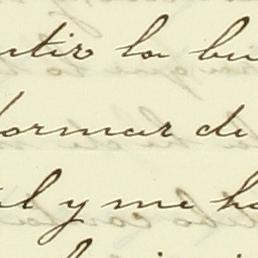 ntir la bu
formar de
al y me ha